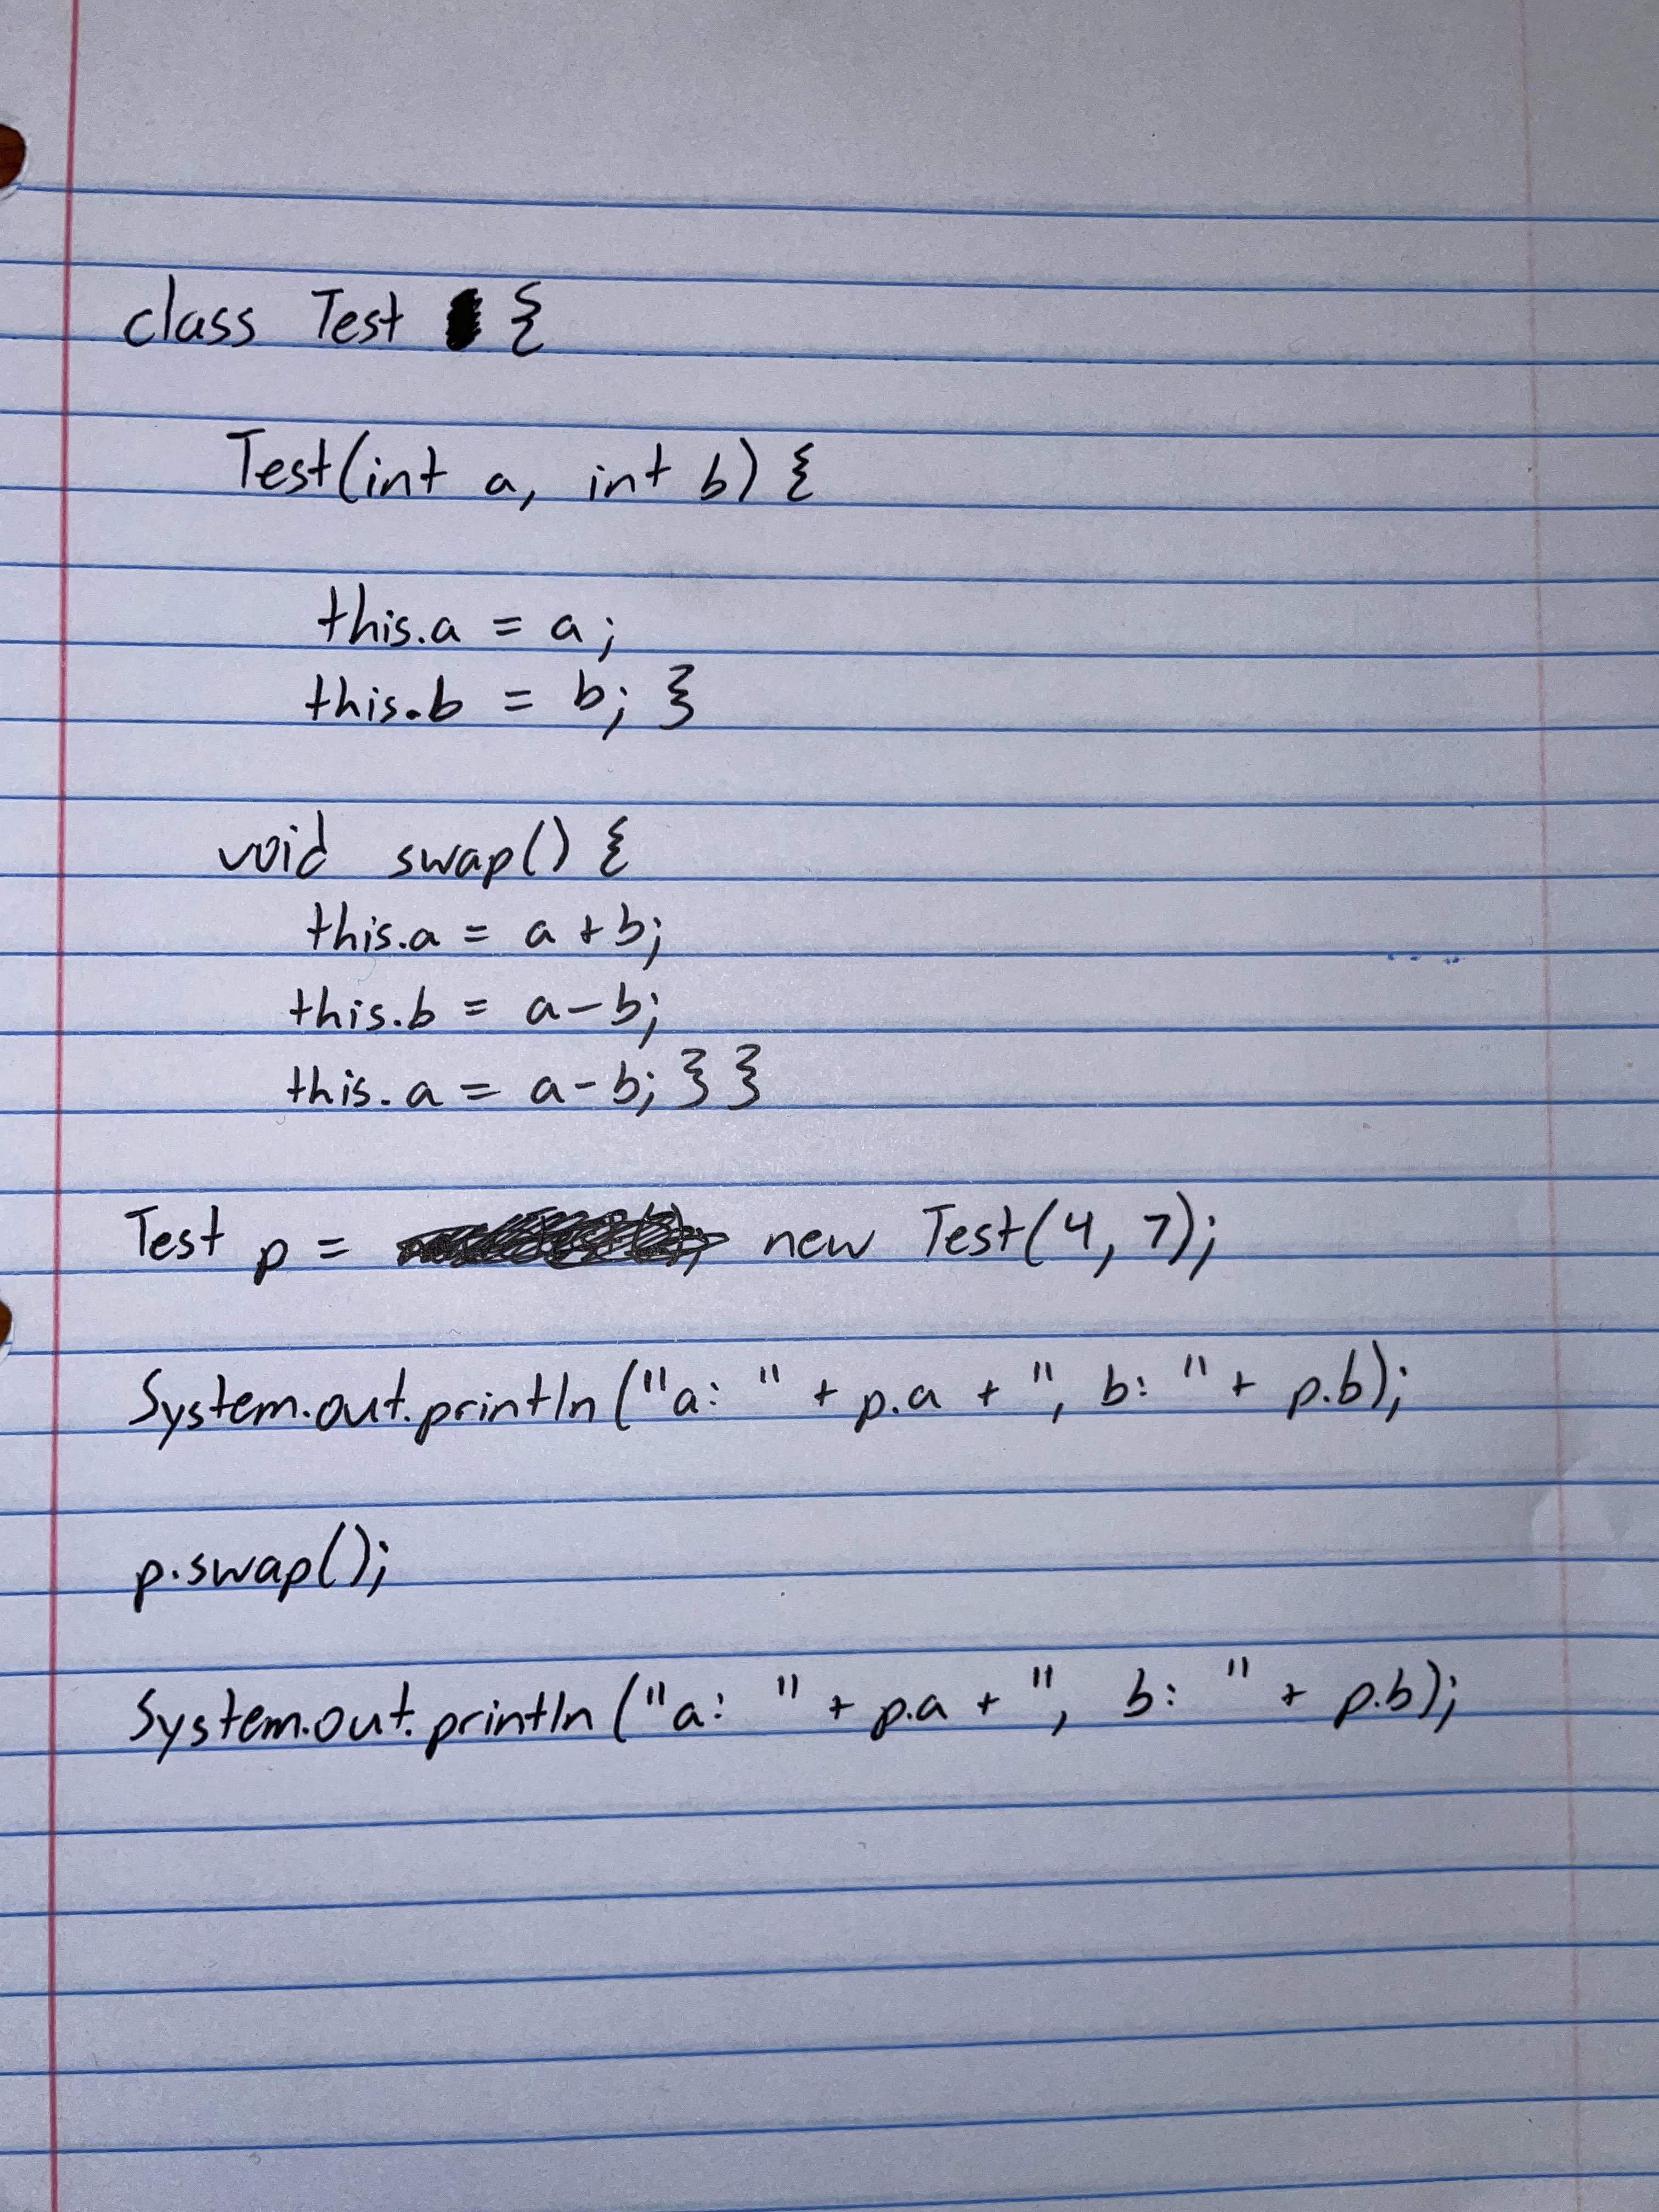 class Test {
Test(int a, int b) {
this.a = a;
this.b = b; }
void swap() {
this.a = a + b;
this.b = a - b;
this.a = a - b; } }
Test p = new Test(4, 7);
System.out.println("a: " + p.a + ", b: " + p.b);
p.swap();
System.out.println("a: " + p.a + ", b: " + p.b);